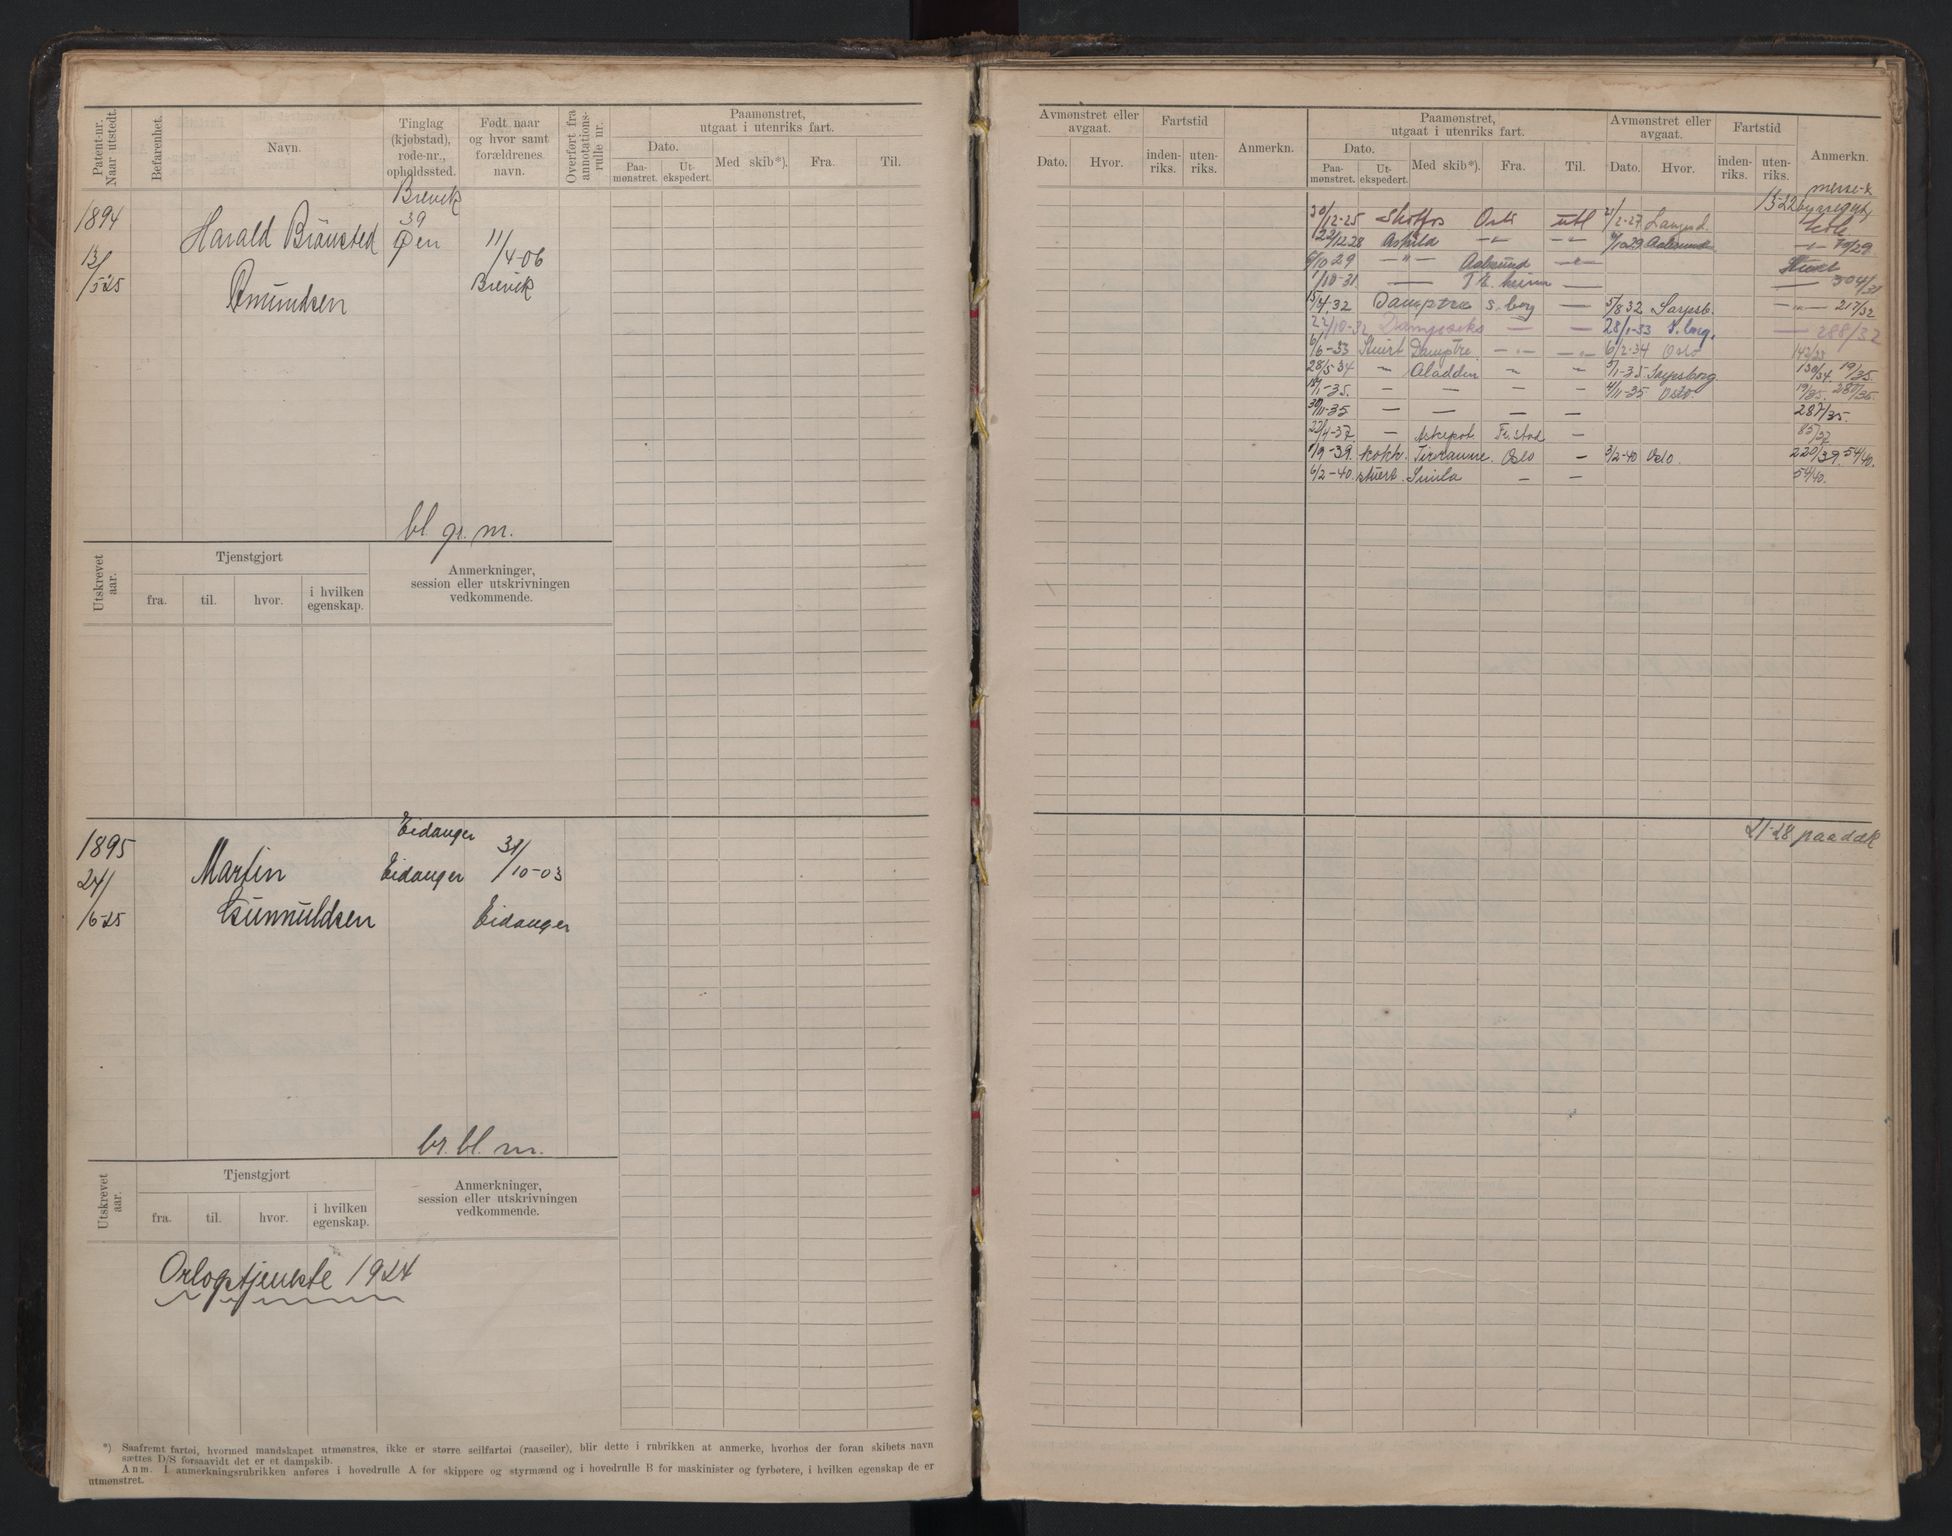 Patent-nr. Naar utstedt.
Befarenhet.
Navn.
Tinglag (kjøbstad), rode-nr., opholdssted.
Født naar og hvor samt forældrenes navn.
Overført fra annotations-rulle nr.
Paamønstret, utgaat i utenriks fart.
Dato.
Paa-mønstret.
Ut-ekspedert.
Med skib*).
Fra.
Til.
Brevik
1894
39
Harald Brönsted
Øen
11/4-06
13/5-25
Brevik
Amundsen
bl. gr. m.
Utskrevet aar.
Tjenstgjort
fra.
til.
hvor.
i hvilken egenskap.
Anmerkninger, session eller utskrivningen vedkommende.
1895
Eidanger
31/10-03
Martin
Eidanger
24/6-25
Gunnuldsen
Eidanger
br. bl. m.
Utskrevet aar.
Tjenstgjort
fra.
til.
hvor.
i hvilken egenskap.
Anmerkninger, session eller utskrivningen vedkommende.
Orlogstjenste 1924
*) Saafremt fartøi, hvormed mandskapet utmønstres, ikke er større seilfartøi (raaseiler), blir dette i rubrikken at anmerke, hvorhos der foran skibets navn
sættes D/S forsaavidt det er et dampskib.
Anm. I anmerkningsrubrikken anføres i hovedrulle A for skippere og styrmænd og i hovedrulle B for maskinister og fyrbøtere, i hvilken egenskap de er
utmønstret.
Avmønstret eller avgaat.
Dato.
Hvor.
Fartstid
inden-riks.
uten-riks.
Anmerkn.
Paamønstret, utgaat i utenriks fart.
Dato.
Paa-mønstret.
Ut-ekspedert.
Med skib*).
Fra.
Til.
Avmønstret eller avgaat.
Dato.
Hvor.
Fartstid
inden-riks.
uten-riks.
Anmerkn.
13-22
30/12-25 Skotfos Oslo utl 2-27
22/12 28 Askild -"- -"- 29 Aalesund -"- 79/29
6/10 29 -"- Aalesund -"-
1/10-31 — T.heim — — 304/31
15/4.32 Damptre s.borg — 5/8 32 Sarpsb. -"- 217/32
22/10-32 — — 28/1-33 S.borg. — 288/32
6/6-33 Stuert Damptre — — 6/2-34 Oslo 142/33
28/5-34 " Aladdin " " 5/1-35 Sarpsborg 130/34. 19/35.
18/1-35. — — — — 4/11-35 Oslo. 19/35. 280/35.
30/11-35 — — — — 287/35.
22/4-37 — Askepot Fr.stad — 85/37
1/9-39. kokk. Oslo — 3/2-40 Oslo. 220/39. 54/40.
6/2-40. stuert. Simla — — 54/40.
21-28 paa dæk